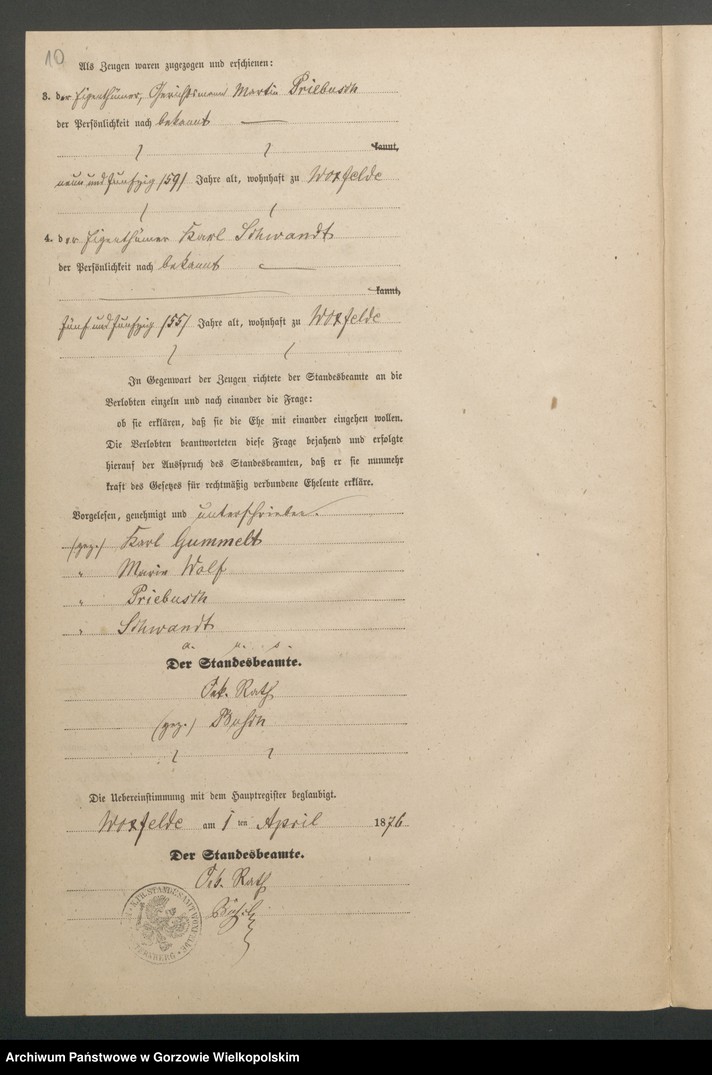 10
Als Zeugen waren zugezogen und erschienen:
3. der Eigenthümer, Gerichtsmann Martin Priebusch
der Persönlichkeit nach bekannt
kannt,
neun und fünfzig /59/ Jahre alt, wohnhaft zu Woxfelde
4. der Eigenthümer Karl Schwandt
der Persönlichkeit nach bekannt
kannt,
fünf und fünfzig /55/ Jahre alt, wohnhaft zu Woxfelde
In Gegenwart der Zeugen richtete der Standesbeamte an die
Verlobten einzeln und nach einander die Frage:
ob sie erklären, daß sie die Ehe mit einander eingehen wollen.
Die Verlobten beantworteten diese Frage bejahend und erfolgte
hierauf der Ausspruch des Standesbeamten, daß er sie nunmehr
kraft des Gesetzes für rechtmäßig verbundene Eheleute erkläre.
Vorgelesen, genehmigt und unterschrieben.
(gez.) Karl Gummelt
" Marie Wolf
" Priebusch
" Schwandt
a. u. s.
Der Standesbeamte.
Rath
(gez.)
Die Uebereinstimmung mit dem Hauptregister beglaubigt.
Woxfelde am 1 ten April 1876
Der Standesbeamte.
Rath
K. PR. STANDESAMT WOXFELDE
STERNBERG
Archiwum Państwowe w Gorzowie Wielkopolskim